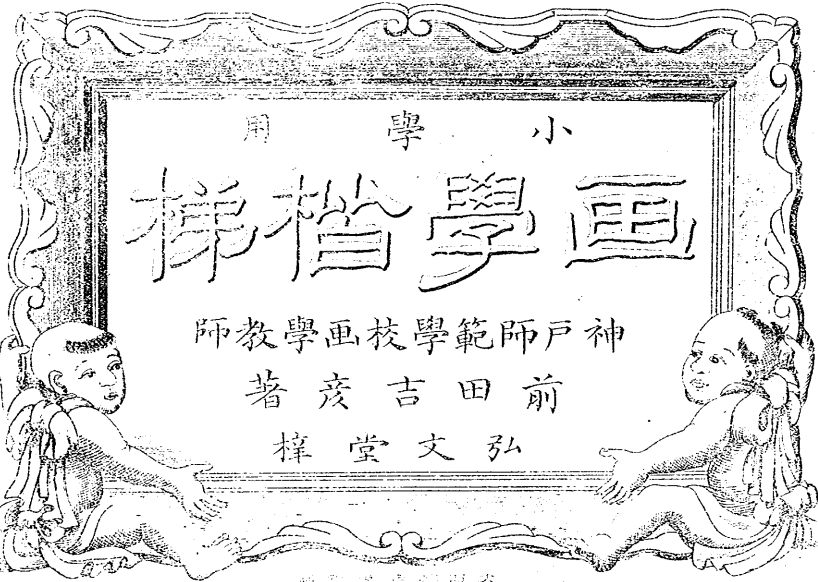 小學用
画學楷梯
神戸師範學校画學教師
前田吉彦著
弘文堂梓